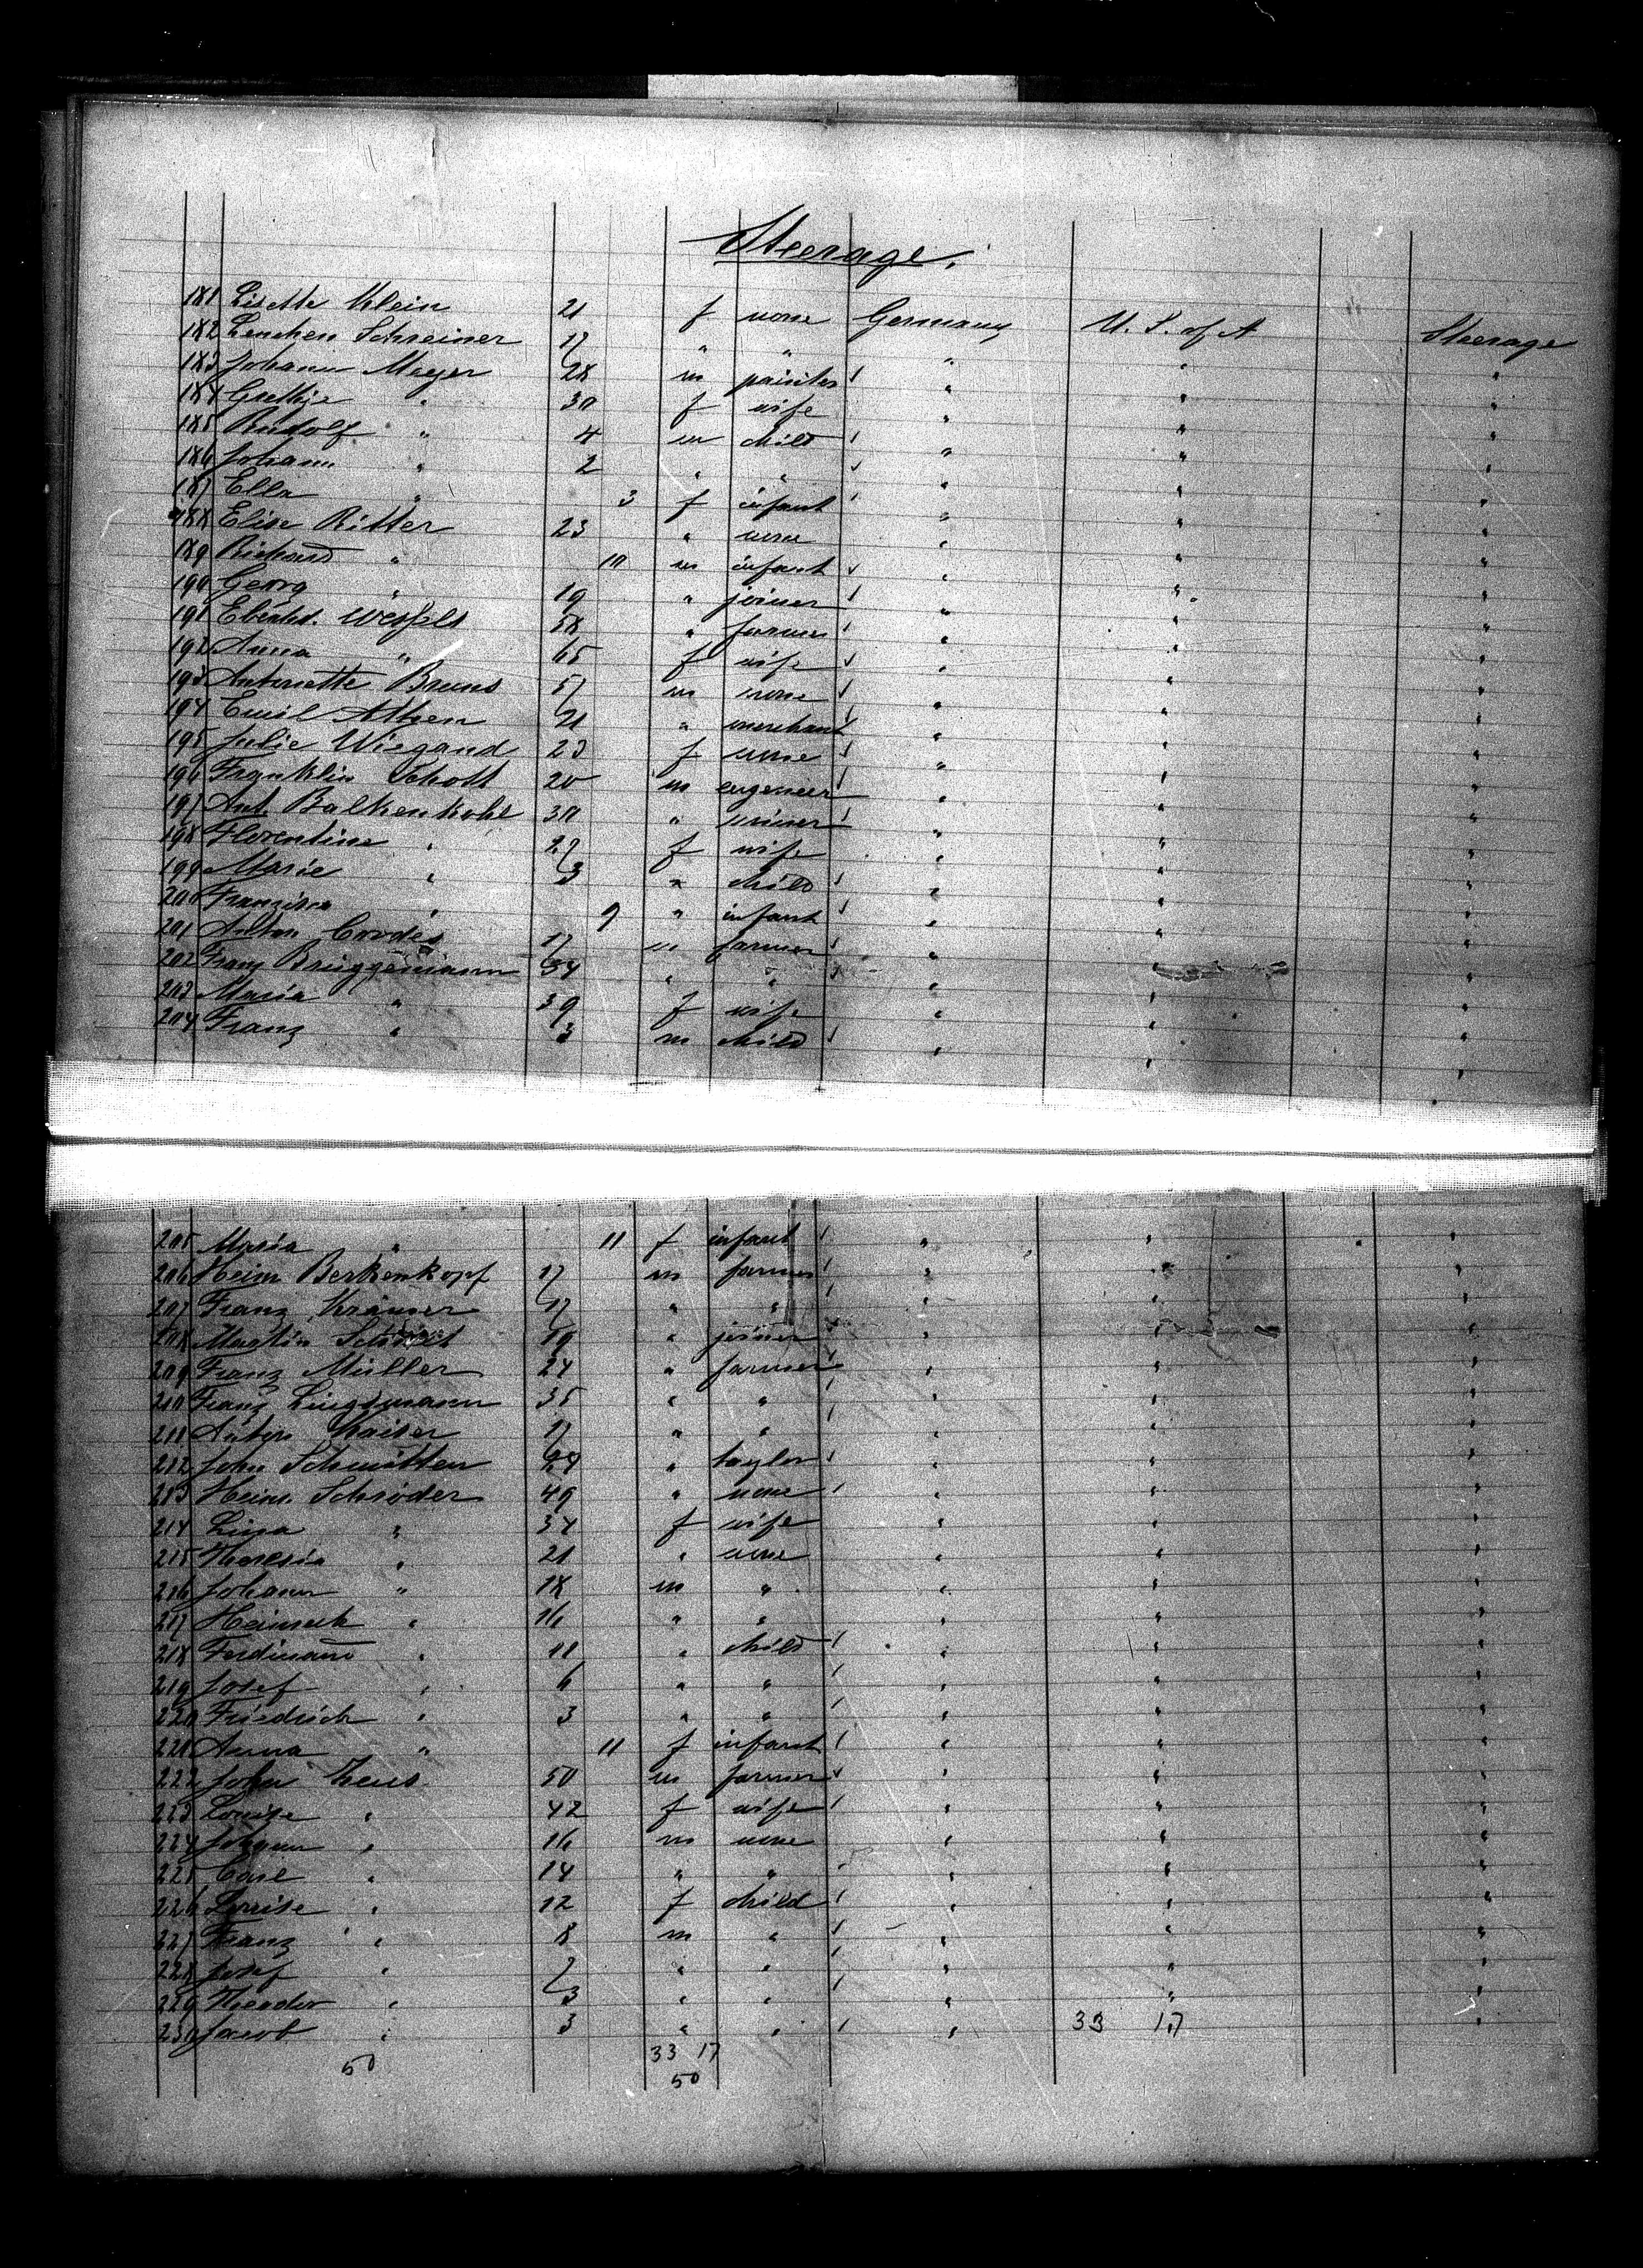 Steerage.
181 Lisette Klein 21 f none Germany U. S. of A Steerage
182 Lenchen Schreiner 17 " " " " "
183 Johann Meyer 28 m painter " " "
184 " 30 f wife " " "
185 Rudolf " 4 m child " " "
186 Johann " 2 " " " " "
187 Ella " 3 f infant " " "
188 Elise Ritter 23 " none " " "
189 Richard " 10 m infant " " "
190 Georg " 19 " joiner " " "
191 Wessels 58 " farmer " " "
192 Anna " 65 f wife " " "
193 Antonette Bruns 57 m none " " "
194 Emil 21 " merchant " " "
195 Julie Wiegand 23 f none " " "
196 Franklin Schott 20 m engeneer " " "
197 Ant. Balkenkohl 30 " miner " " "
198 Florentine " 27 f wife " " "
199 Marie " 3 " child " " "
200 " 9 " infant " " "
201 Anton Cordes 17 m farmer " " "
202 Franz Brüggemann 34 " " " " "
203 Maria " 39 f wife " " "
204 Franz " 3 m child " " "
205 Maria " 11 f infant " " "
206 Heinr Berkenkopf 17 m farmer " " "
207 Franz Krämer 17 " " " " "
208 Martin 19 " joiner " " "
209 Franz Müller 24 " farmer " " "
210 Franz Lingemann 35 " " " " "
211 Anton Kaiser 17 " " " " "
212 John Schmitten 24 " taylor " " "
213 Heinr. Schröder 49 " none " " "
214 Lina " 34 f wife " " "
215 Theresia " 21 " none " " "
216 Johann " 18 m " " " "
217 Heinrich " 16 " " " " "
218 Ferdinand " 11 " child " " "
219 Josef " 6 " " " " "
220 Friedrich " 3 " " " " "
221 Anna " 11 f infant " " "
222 John 50 m farmer " " "
223 Louise " 42 f wife " " "
224 Johann " 16 m none " " "
225 Carl " 14 " " " " "
226 Louise " 12 f child " " "
227 Franz " 8 m " " " "
228 Josef " 7 " " " " "
229 Theodor " 3 " " " " "
230 Jacob " 3 " " " 33 17 "
50 33 17
50